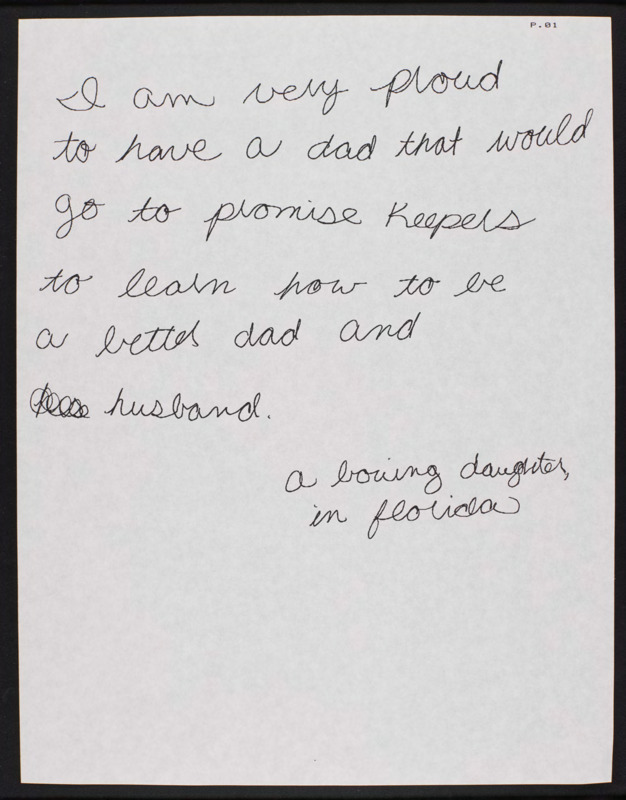 P.01
I am very proud
to have a dad that would
go to promise Keepers
to learn how to be
a better dad and
husband.
a loving daughter,
in florida